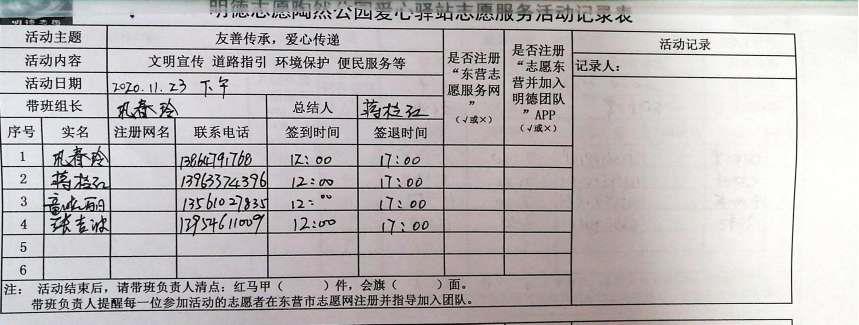 明德志愿陶然公园爱心驿站志愿服务活动记录表
明德志愿
活动主题 友善传承，爱心传递
活动内容 文明宣传 道路指引 环境保护 便民服务等
活动日期 2020.11.23 下午
带班组长 巩春玲 总结人 蒋桂红
是否注册“东营志愿服务网”（√或×）
是否注册“志愿东营并加入明德团队”APP（√或×）
活动记录
记录人：
序号 实名 注册网名 联系电话 签到时间 签退时间
1 巩春玲 13864791768 12:00 17:00
2 蒋桂红 13963374396 12:00 17:00
3 13561027835 12:00 17:00
4 张吉波 13954611009 12:00 17:00
5
6
注： 活动结束后，请带班负责人清点：红马甲（ ）件，会旗（ ）面。
带班负责人提醒每一位参加活动的志愿者在东营市志愿网注册并指导加入团队。